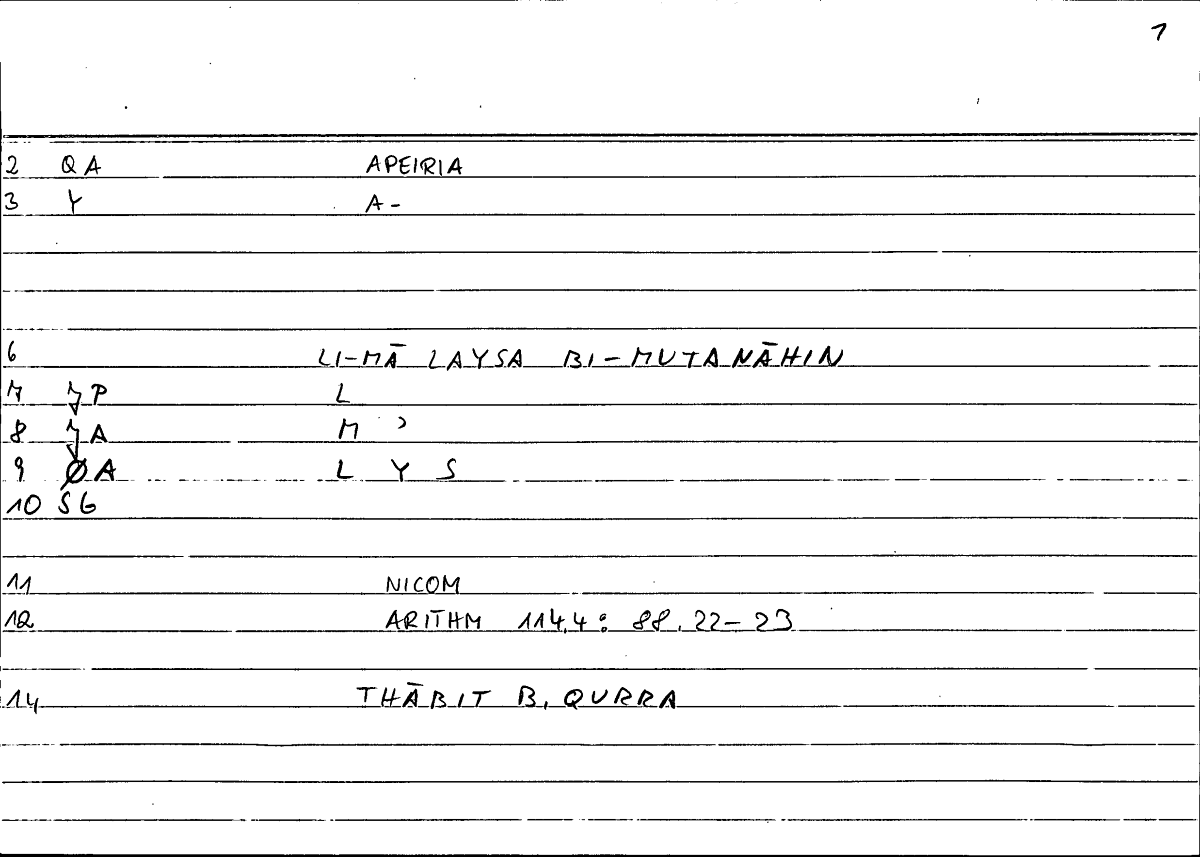 1
2 QA APEIRIA
3 Y A-
6 LI-MĀ LAYSA BI-MUTANĀHIN
7 P L
8 A M ʾ
9 ØA L Y S
10 SG
11 NICOM
12 ARITHM 114,4: 88.22-23
14 THĀBIT B. QURRA